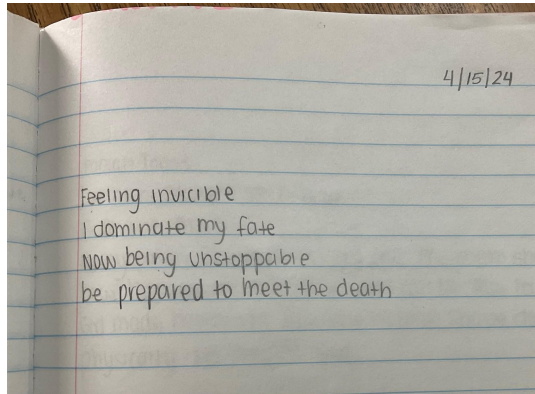 4/15/24
Feeling invicible
I dominate my fate
Now being unstoppable
be prepared to meet the death